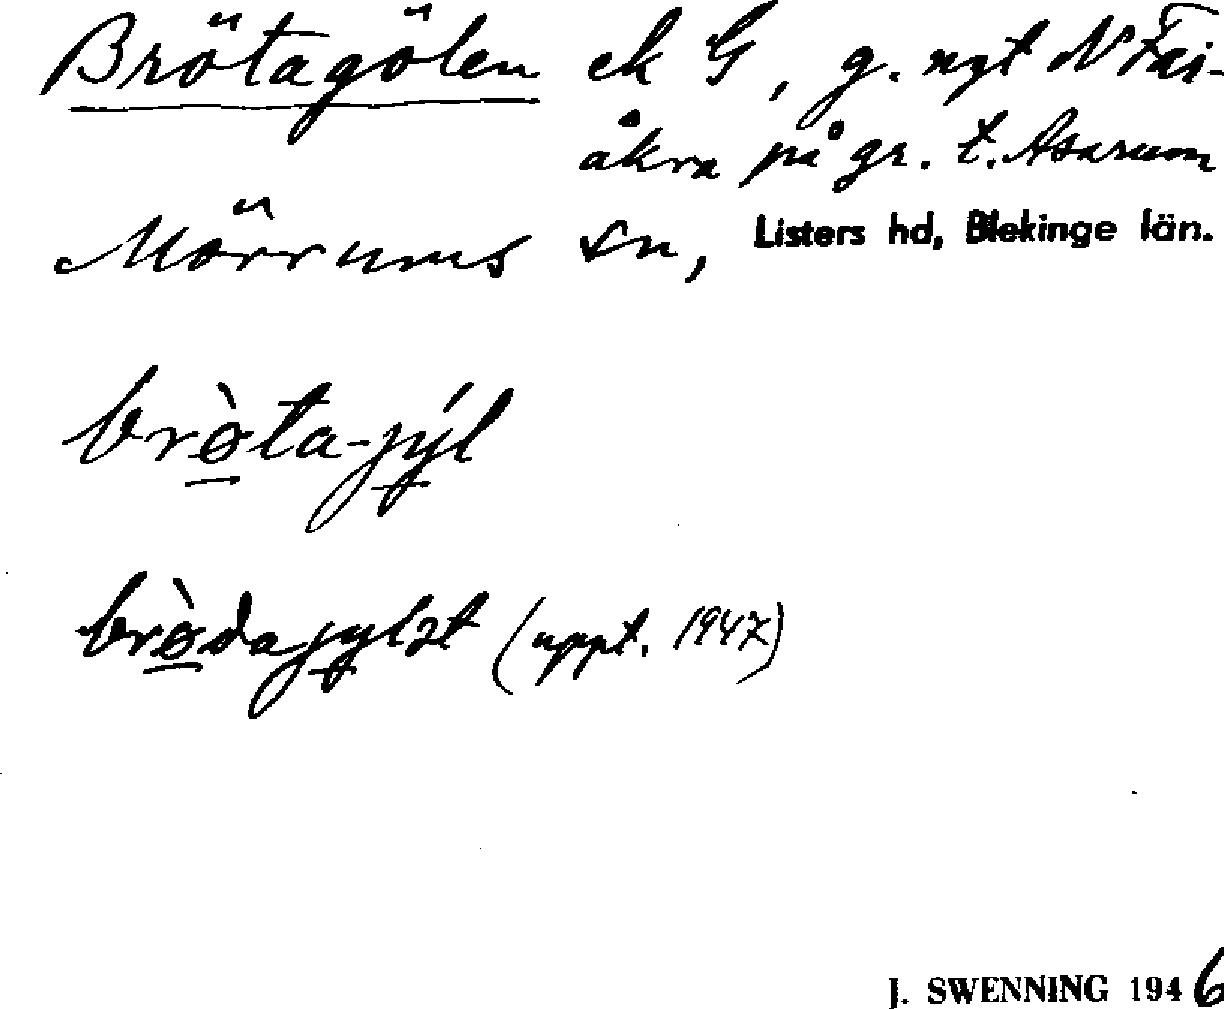 Brötagölen ek G, g. nyt N Fai-
åkra på gr. t. Asarum
Mörrums sn, Listers hd, Blekinge län.
brø̀ta-jýl
brø̀dajylət (uppt. 1947)
J. SWENNING 1946